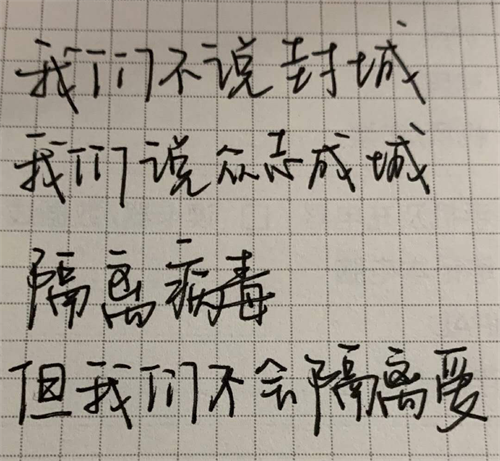 我们不说封城
我们说众志成城
隔离病毒
但我们不会隔离爱